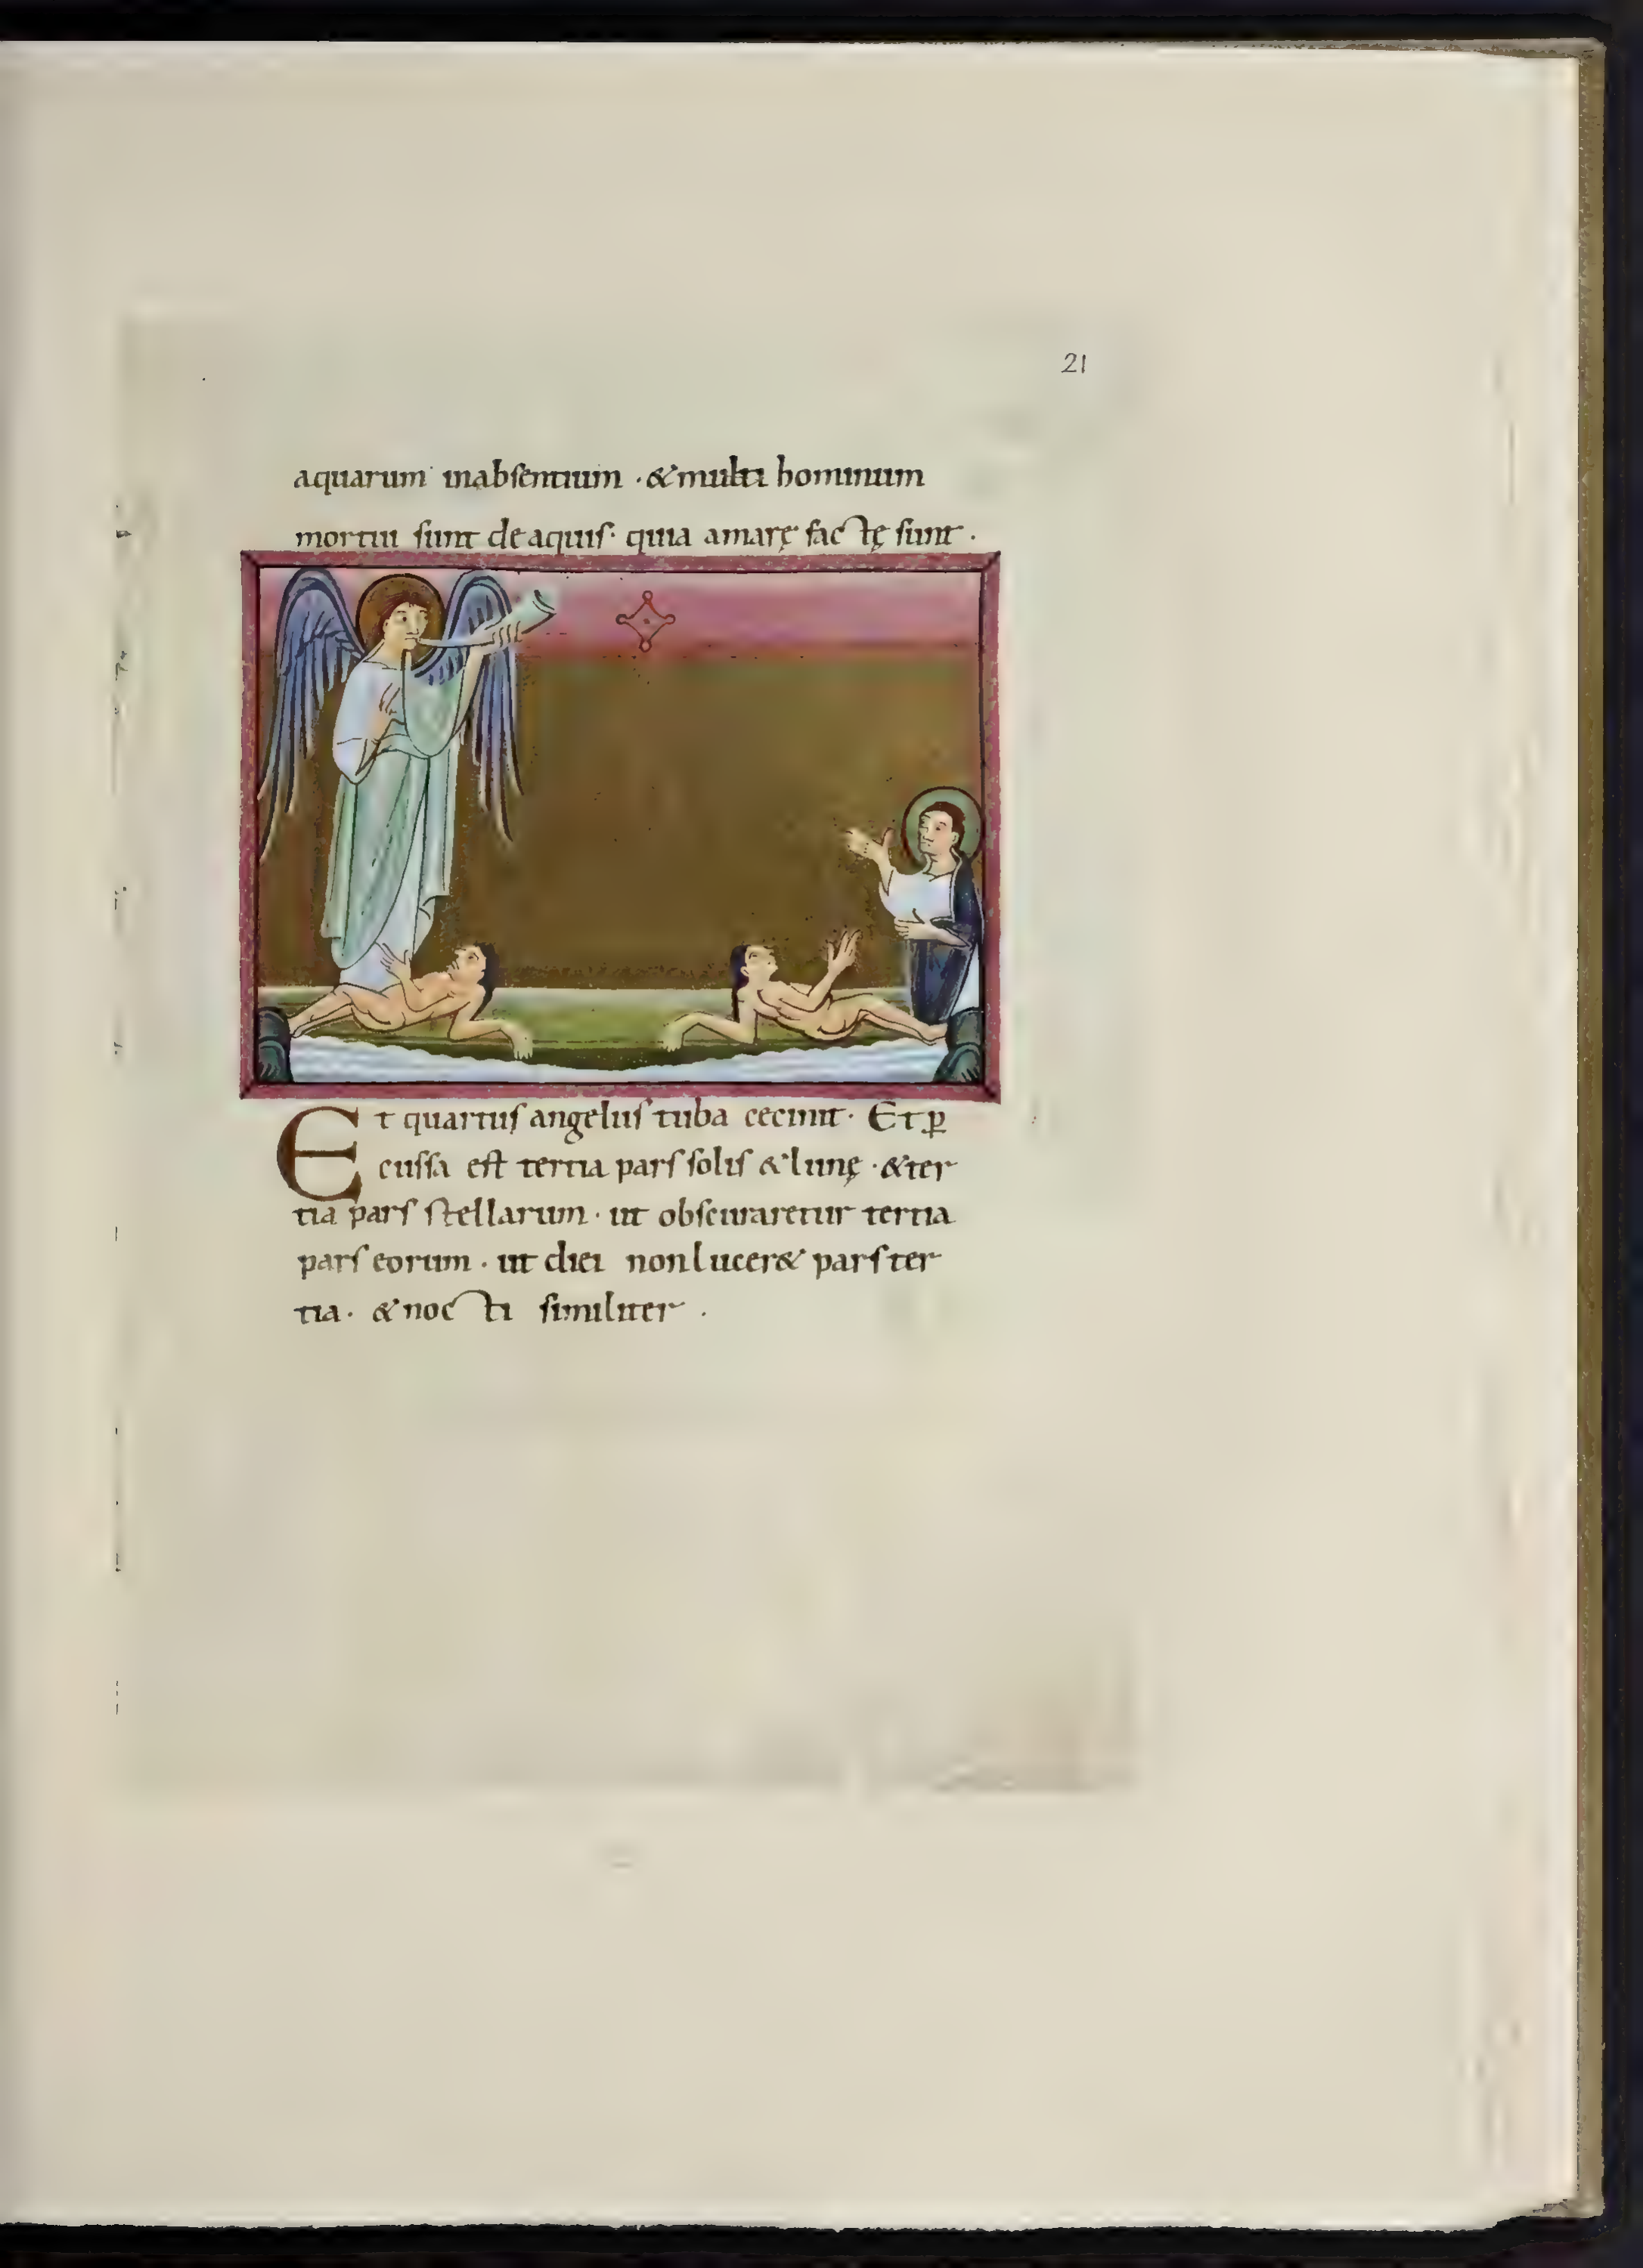 21
aquarum inabsentium · & multi hominum
mortui sunt de aquis · quia amarę factę sunt ·
Et quartus angelus tuba cecinit · Et p̲
cussa est tertia pars solis & lunę · & ter
tia pars stellarum · ut obscuraretur tertia
pars eorum · ut diei non lucer& pars ter
tia · & nocti similiter ·